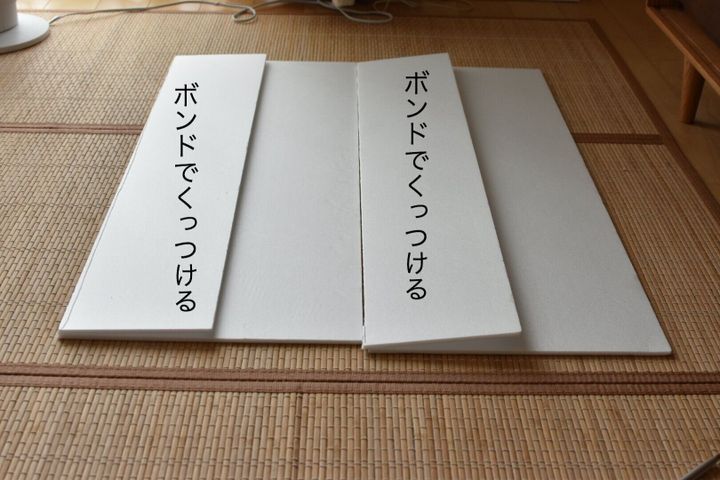 ボンドでくっつける
ボンドでくっつける